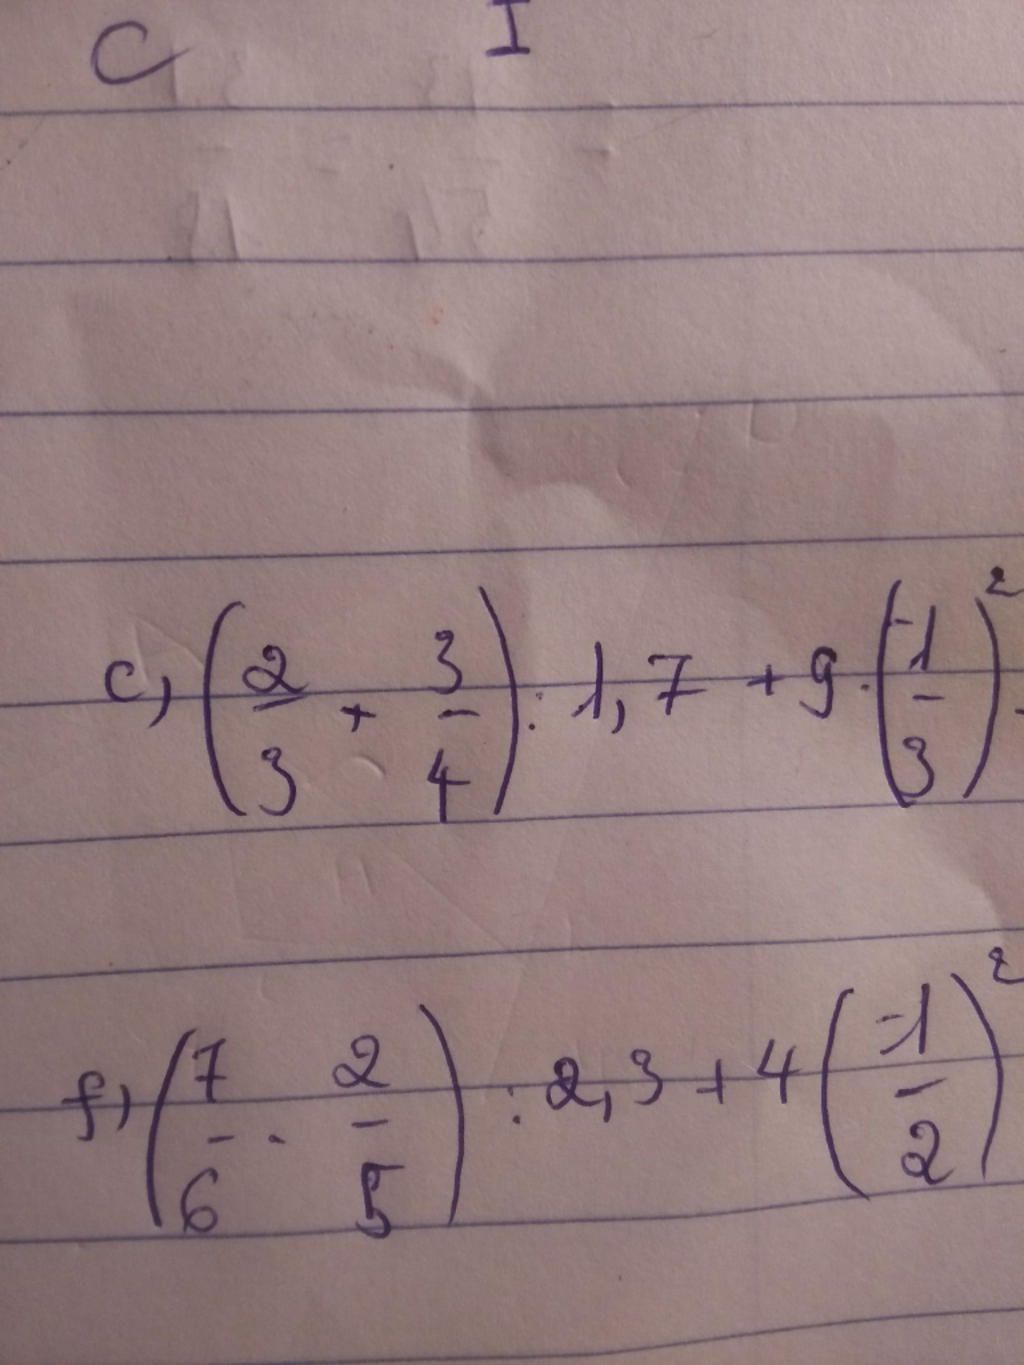 C I
c, (2/3 + 3/4) : 1,7 + 9 · (-1/3)²
f, (7/6 - 2/5) : 2,3 + 4 (-1/2)²